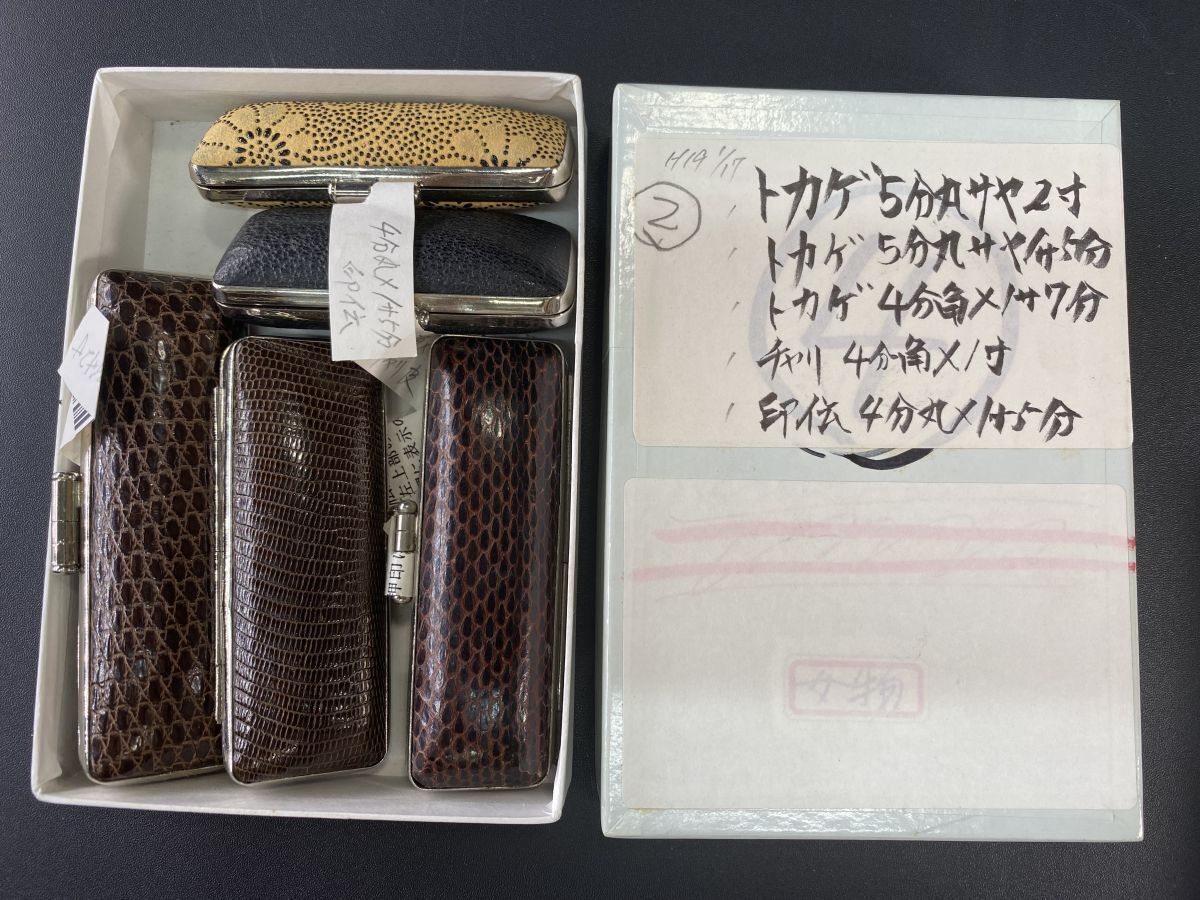 4分丸×1寸5分
印伝
在上部の
に表示。
H19 1/17
2
トカゲ 5分丸サヤ2寸
トカゲ 5分丸サヤ1寸5分
トカゲ 4分角×1寸7分
チャリ 4分角×1寸
印伝 4分丸×1寸5分
女物